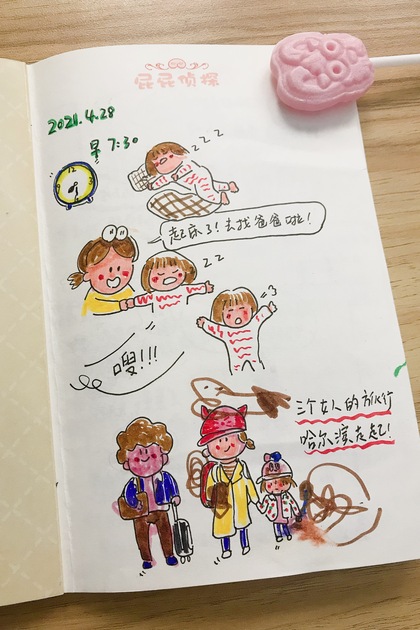 屁屁侦探
2021.4.28
早 7:30
z z z
起床了！去找爸爸啦！
z z
嗖!!!
三个女人的旅行
哈尔滨走起！